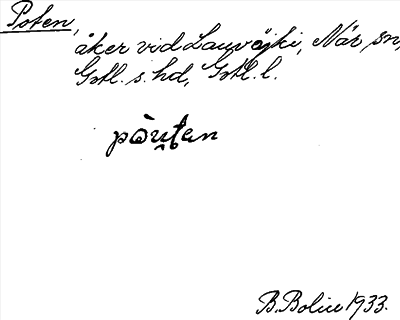 Poten,
åker vid Lauvöjki, När sn,
Gotl. s. hd, Gotl. l.
pòu̯ten
B. Bolin 1933.